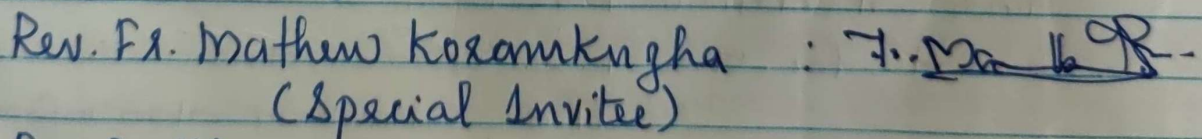 Rev. Fr. Mathew Koramkugha :
(Special Invitee)